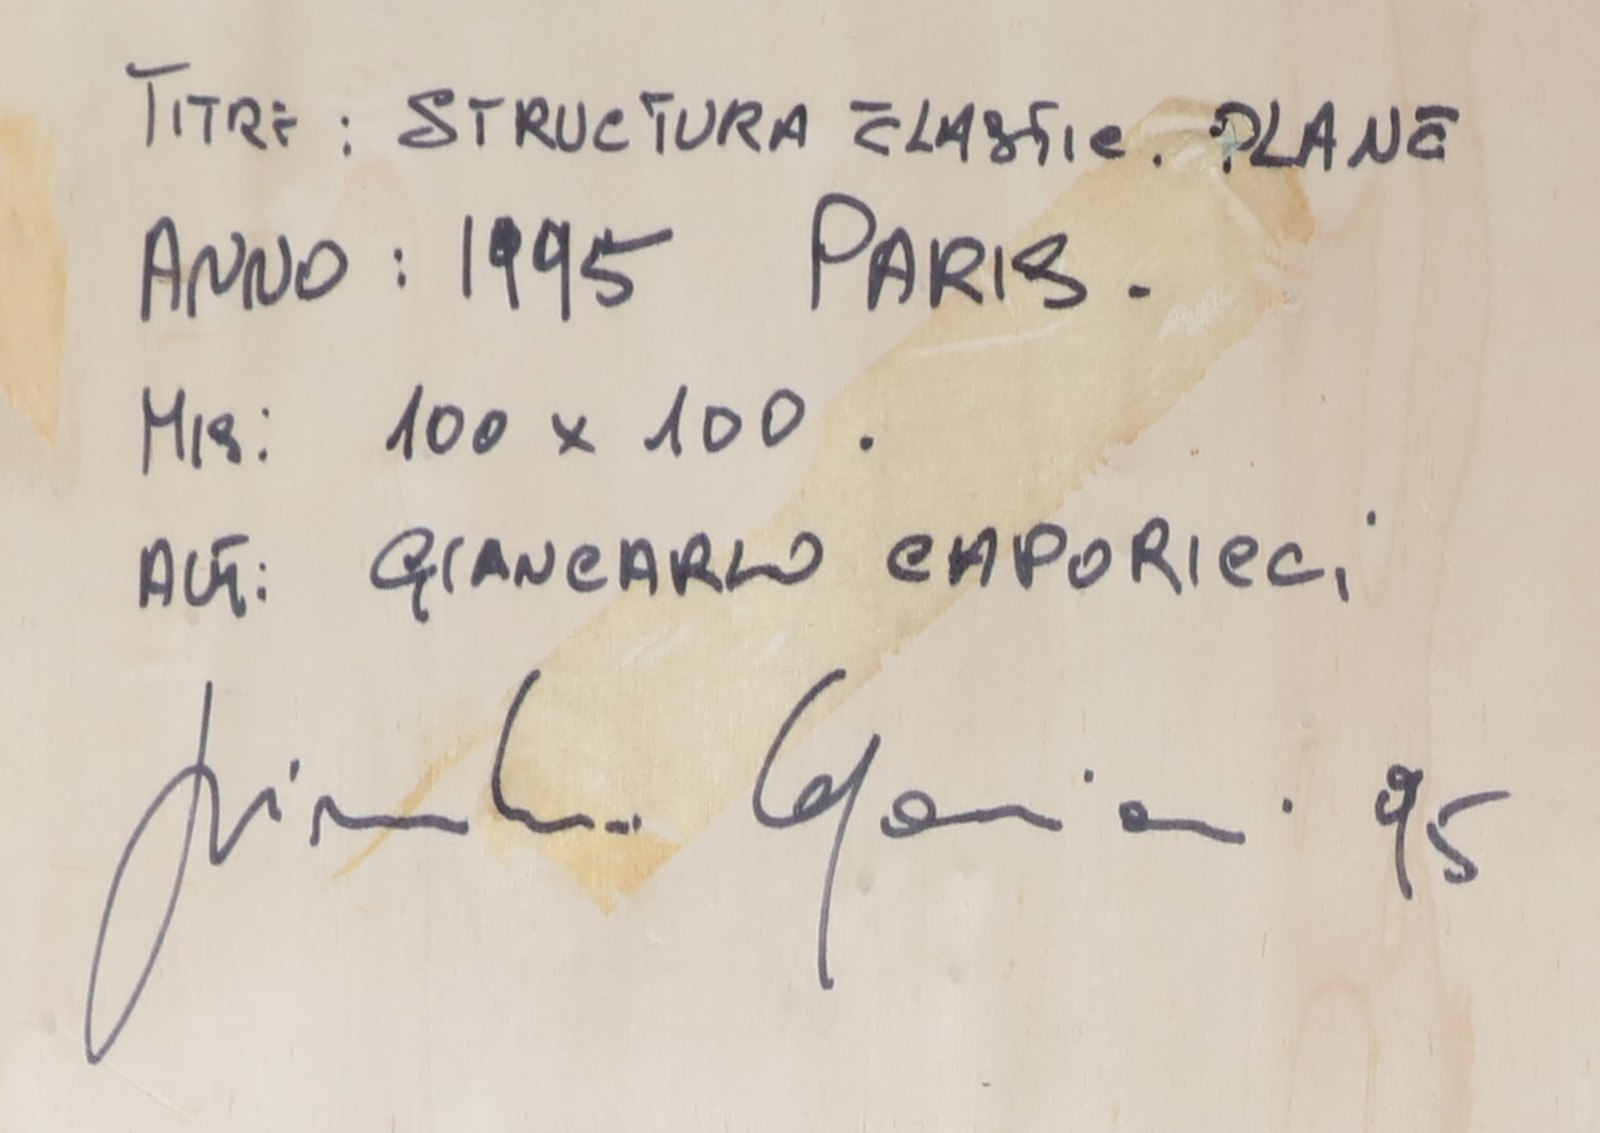 TITRE : STRUCTURA ELASTIC. PLANE
ANNO : 1995 PARIS.
MIS: 100 x 100.
AUT: GIANCARLO CAPORICCI
Giancarlo Caporicci. 95